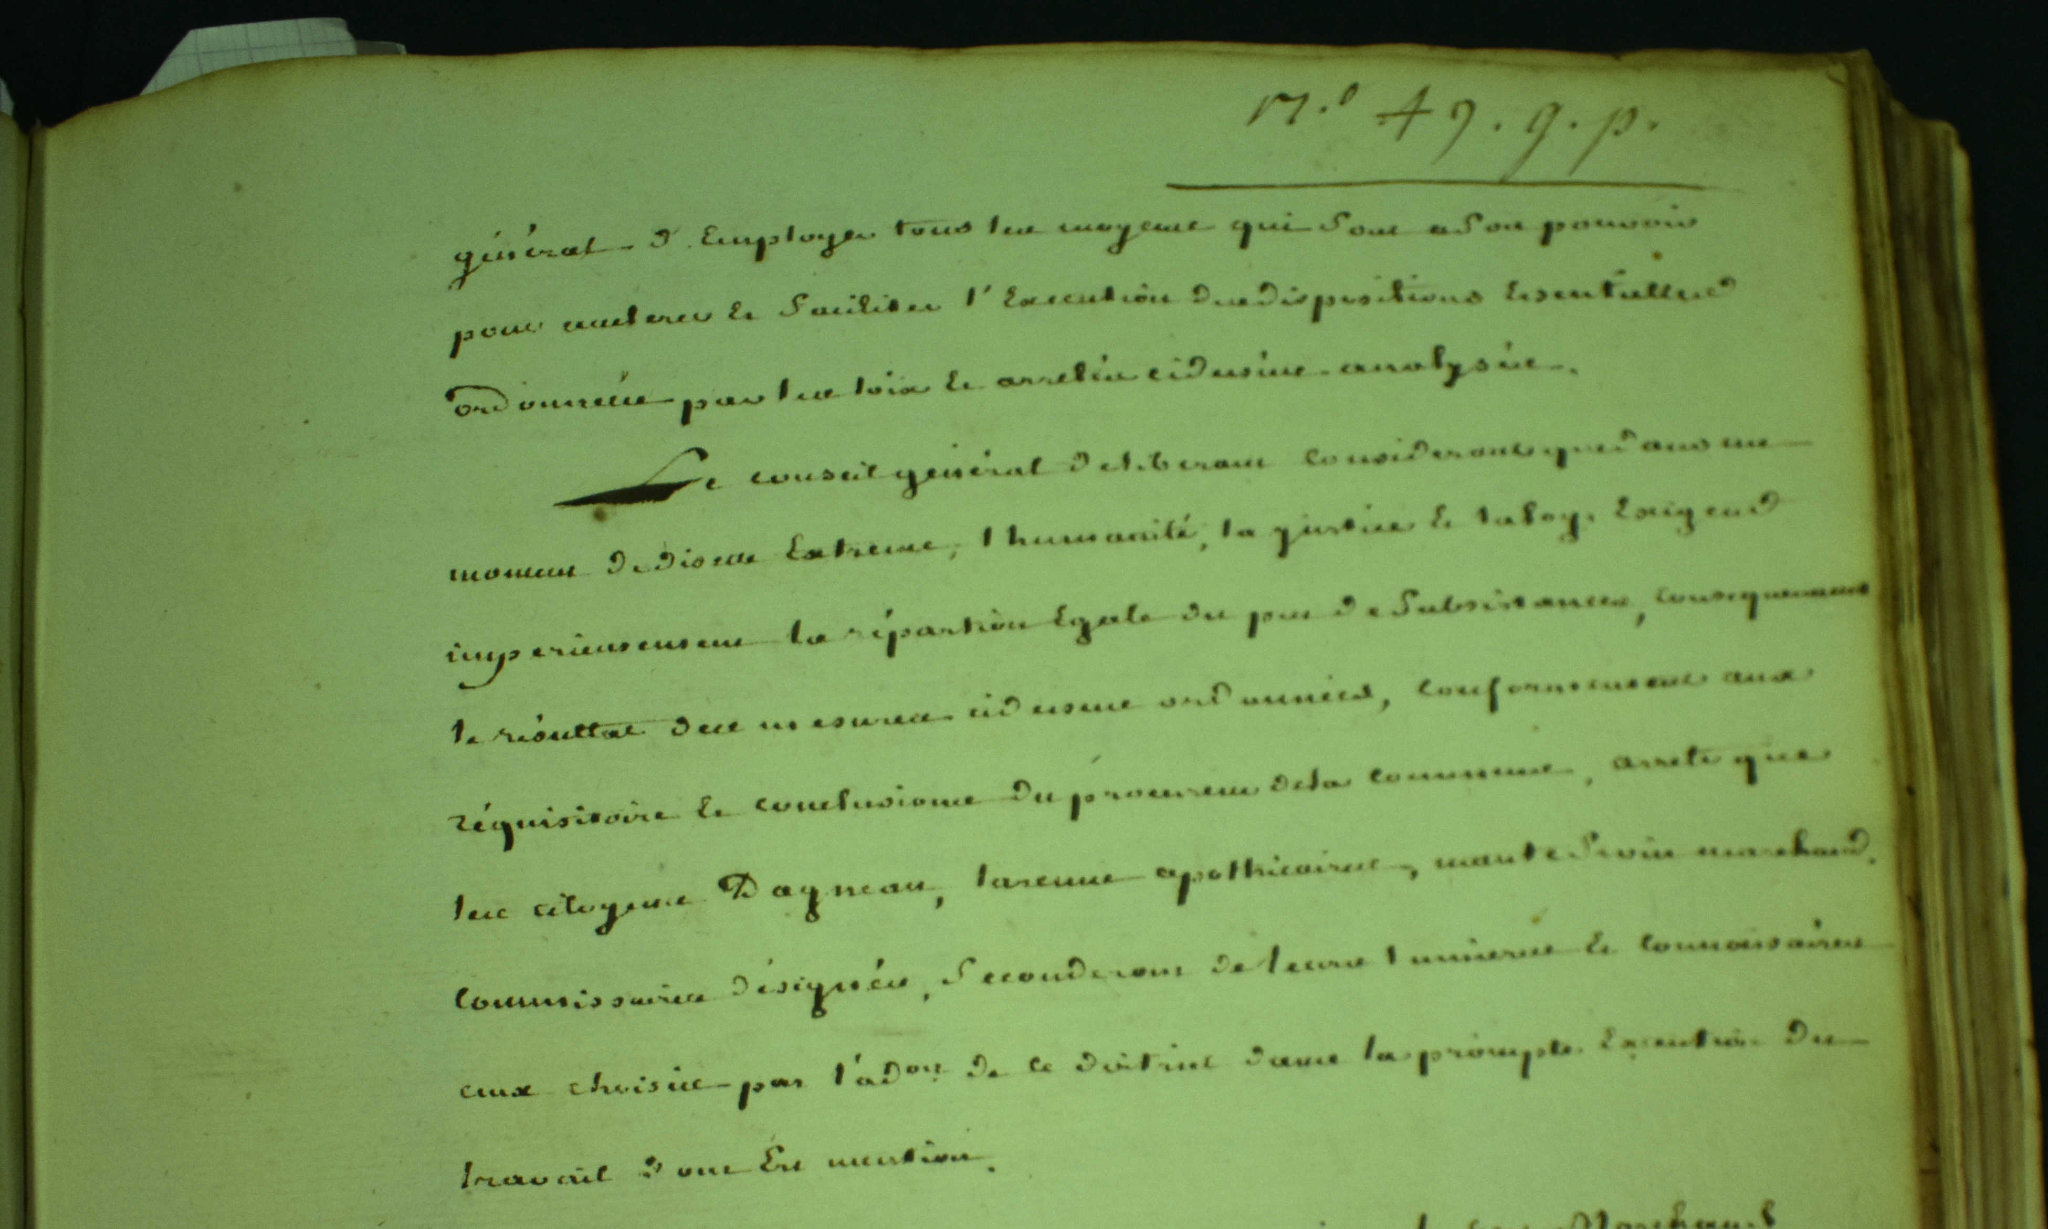 n.° 49. g. p.
général d'Employer tous les moyens qui sont a son pouvoir
pour accelerer et faciliter l'Execution des dispositions Essentielles
ordonnées par les loix et arretés cidessus analysés.
Le conseil général deliberant considerant que dans un
moment de disette Extreme, l'humanité, la justice et la loy Exigent
imperieusement la répartion Egale du peu de subsistances, consequemment
le résultat des mesures cidessus ordonnées, conformement aux
réquisitoire et conclusions du procureur de la commune, arrete que
les citoyens Dagneau, apothicaires, marchand
commissaires désignés, seconderont de leurs lumieres et connoissances
ceux choisis par l'adon de ce district dans la prompte Execution du
travail dont Est mention.
Marchand